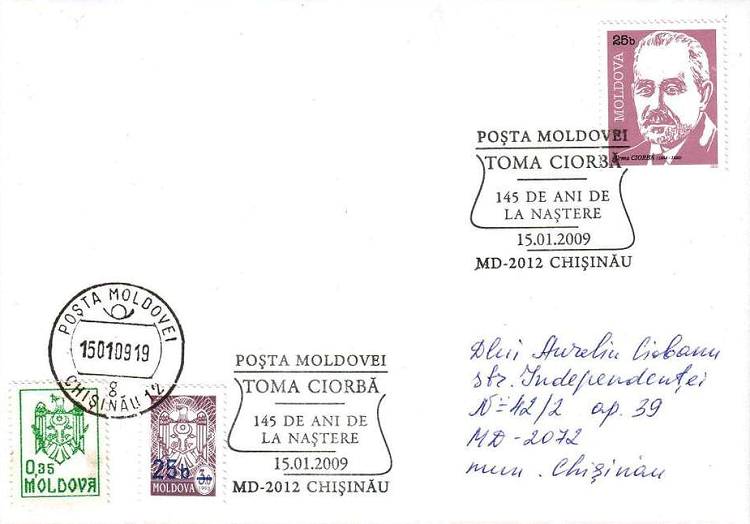 25b
MOLDOVA
Toma CIORBĂ
POŞTA MOLDOVEI
TOMA CIORBĂ
145 DE ANI DE
LA NAŞTERE
15.01.2009
MD-2012 CHIŞINĂU
Dlui Aureliu Ciobanu
str. Independenţei
Nº 42/2 ap. 39
MD-2072
mun. Chişinău
POŞTA MOLDOVEI
15010919
8
CHIŞINĂU 12
POŞTA MOLDOVEI
TOMA CIORBĂ
145 DE ANI DE
LA NAŞTERE
15.01.2009
MD-2012 CHIŞINĂU
0,35
MOLDOVA
25b
MOLDOVA